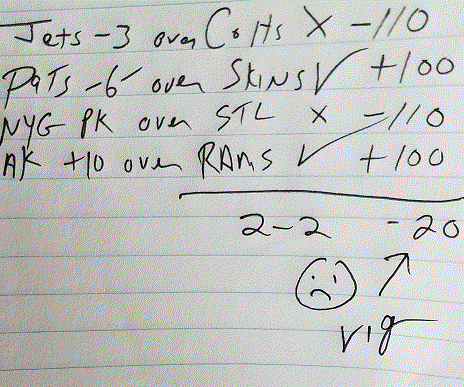 Jets -3 over Colts X -110
PaTs -6 over SkiNS ✓ +100
NYG PK over STL x -110
AK +10 over RAMS ✓ +100
2-2 -20
vig